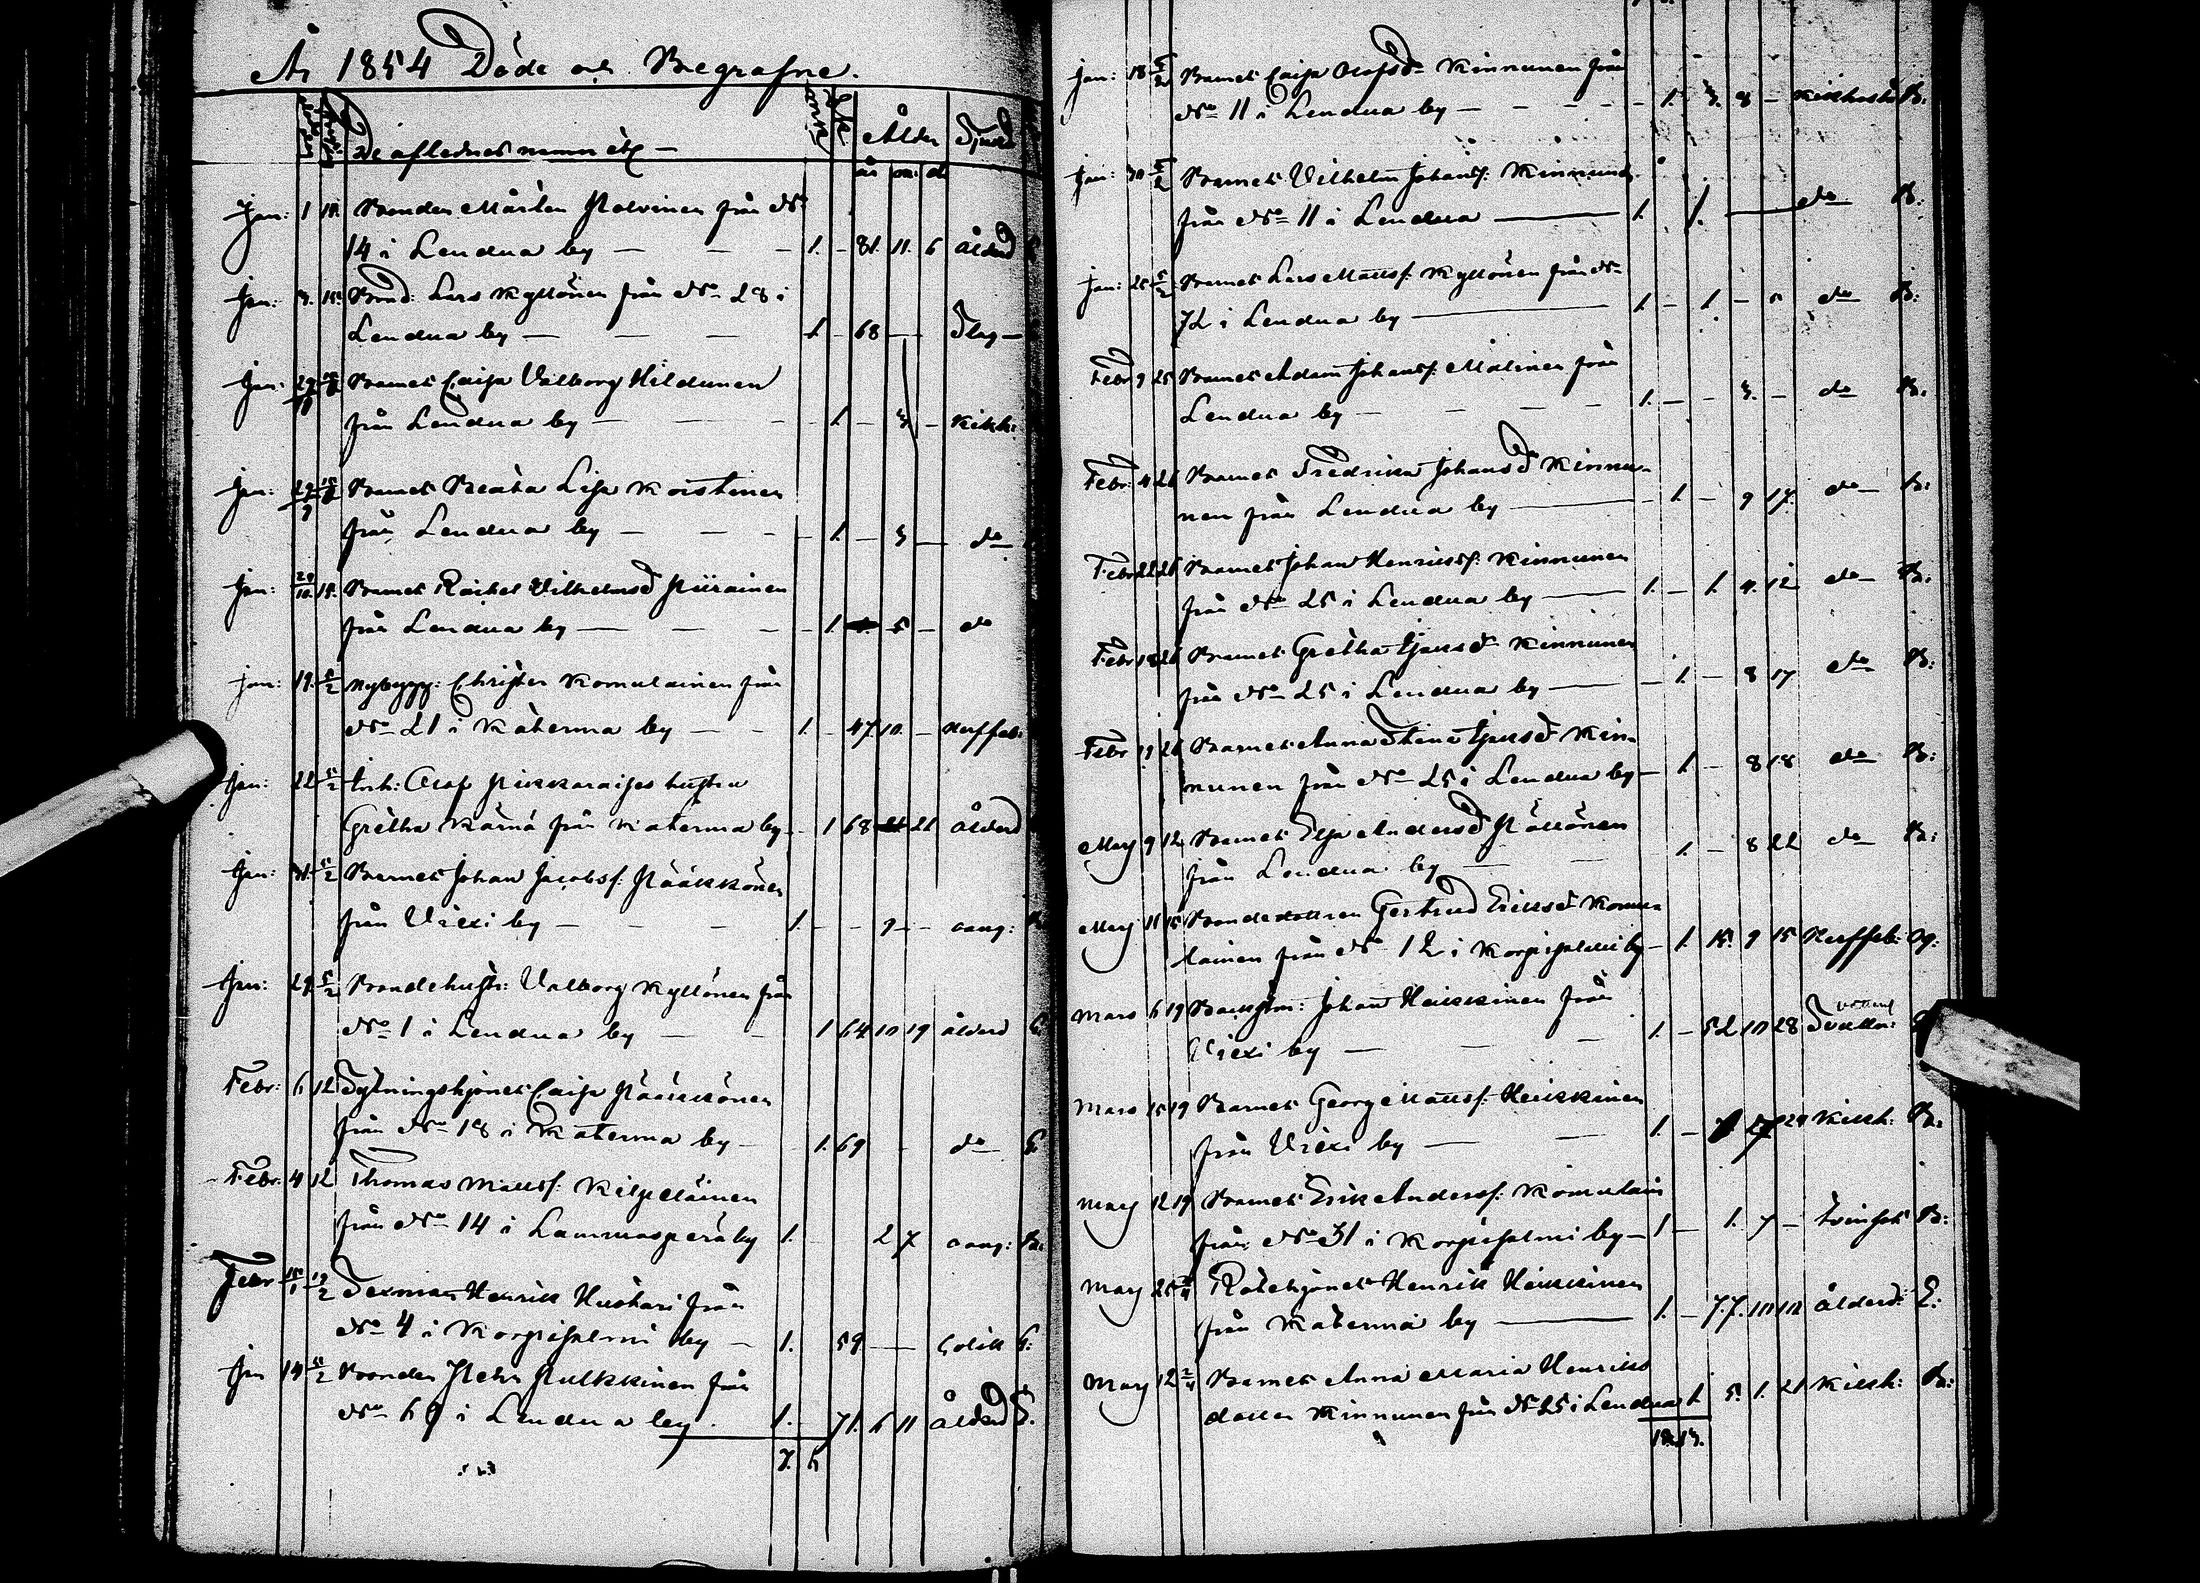 År 1854 Döde och Begrafne.
De aflednes namn etc — Ålder Sjukd
år m: d
Jan: 1 15. Bonden Mårten Polvinen från No
14 i Lendua by — — — 1. - 81. 11. 6 Ålderd
Jan: 3. 15. Bond: Lars Kyllönen från No 28 i
Lendua by — — — 1. - 68 — Slag —
Jan: Barnet Caisa Valborg Hildunen
från Lendua by — — — - 1. - 3 - Kikh:
Jan: Barnet Beata Lisa Koistinen
från Lendua by — — - - 1. - 3 — do
Jan: 29/10. 15. Barnet Rachel Vilhelmsd Piirainen
från Lendua by — — - - 1. 5 - do
Jan: 19. 5/2 Nybygg: Christer Komulainen från
No 21 i Katerma by — - 1. - 47 10. - Nerffeb:
Jan: 22 5/2 Inh: Olof Pikkaraises hustru
Gretha Kärnä från Katerma by - 1 68 21 Ålderd
Jan: 31. 5/2 Barnet Johan Jacobss: Pääkkönen
från Viexi by — - - 1. - - 9 - - aang: B.
Jan: 29. 5/2 Bondehustr: Valborg Kyllönen från
No 1 i Lendua by — — 1 64 10 19 ålderd G.
Febr: 6 12 Sytningshjonet Caisa Pääkkönen
från No 18 i Katerma by — 1. 69 - do G.
Febr. 4 12 Thomas Mattss: Kilpeläinen
från No 14 i Lammasperä by 1. - 2 7 aang: B.
Febr 15/1 19/2 Sexman Henrik Huskari från
No 4 i Korpisalmi by — 1. 59 — — Colik G.
Jan 14 5/2 Bonden Petr Pulkkinen från
No 69 i Lendua by. 1. - 71. 6 11 Ålderd G.
7. 6
Jan: 18 5/2 Barnet Caisa Olofsdr Kinnunen från
No 11 i Lendua by — - - - - 1. 3. 8 - Kikhosta B.
Jan: 30 5/2 Barnet Vilhelm Johanss: Kinnunen
från No 11 i Lendua — 1. 1. — do B.
Jan: 25 5/2 Barnet Lars Mattss: Kyllönen från No
72 i Lendua by — 1. - 1. - 5 do B:
Febr 9 25 Barnet Adam Johanss: Malinen från
Lendua by — - - - 1. - - 3. - do B.
Febr: 4 26 Barnet Fredrika Johansd Kinnu-
nen från Lendua by — - 1. - 9 17. do B:
Febr 22 26 Barnet Johan Henrikss: Kinnunen
från No 25 i Lendua by — 1. - 1. 4. 12 do B:
Febr 18 26 Barnet Gretha Ijansd Kinnunen
från No 25 i Lendua by — - 1. - 8 17 do B:
Febr 19 26 Barnet Anna Stina Ijansd Kin-
nunen från No 25 i Lendua by - 1. - 8 18 do B:
Marj 9 12 Barnet Elsa Andersd Pöllönen
från Lendua by — — 1. - 8 22 do B:
Marj 11 15 Bondedottren Gertrud Ericsd Komu-
lainen från No 12 i Korpisalmi by - 1. 15. 9 15 Nerffeb: og:
Mars 6 19 Backstm: Johan Heikkinen från
Viexi by — — - 1. - 52 10 28
Mars 15 19 Barnet Georg Mattss: Heikkinen
från Viexi by — — 1. - 27 29 Kikh: B.
Marj 12 19 Barnet Erik Anderss: Komulain
från No 31 i Korpisalmi by — 1 - 1. 7 - B:
Marj 25 2/4 Rotehjonet Henrik Heikkinen
från Katerma by — 1. - 77. 10 10 Ålderd: G:
Marj 12 2/4 Barnet Anna Maria Henriks
dotter Kinnunen från No 25 i Lendua 1. 5. 1. 21 Kikh: B: